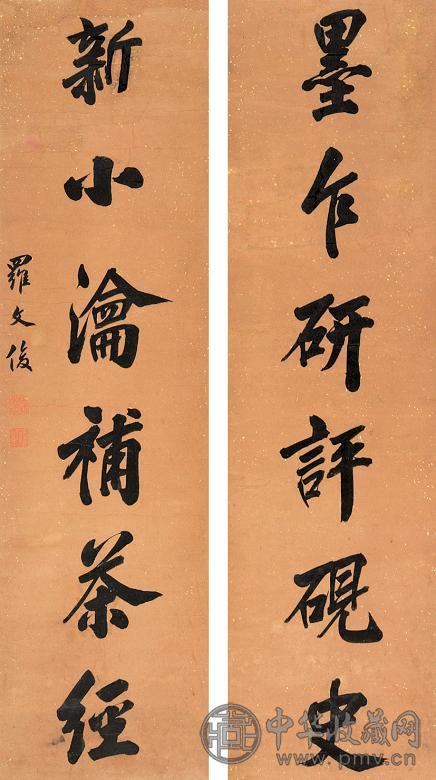 墨乍研評硯史
新小瀹補茶經
羅文俊
中华收藏网
www.pmv.cn